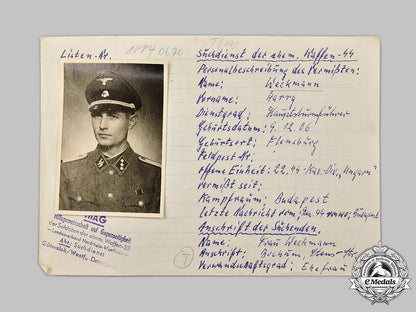 Listen-Nr.
Suchdienst der ehem. Waffen-SS
Personalbeschreibung des Vermißten:
Name: Weckmann
Vorname: Harry
Dienstgrad: Hauptsturmführer
Geburtsdatum: 4.12.06
Geburtsort: Flensburg
Feldpost Nr.
offene Einheit: 22. SS-Kav. Div. „Ungarn"
vermißt seit:
Kampfraum: Budapest
Letzte Nachricht vom: 44 Budapest
Anschrift des Suchenden:
Name: Frau Weckmann
Anschrift: Bochum,
Verwandschaftsgrad: Ehefrau
HIAG
Hilfsgemeinschaft auf Gegenseitigkeit
der Soldaten der ehem. Waffen-SS
Landesverband Nordrhein-Westfalen
Abt. Suchdienst
Gütersloh/Westf.